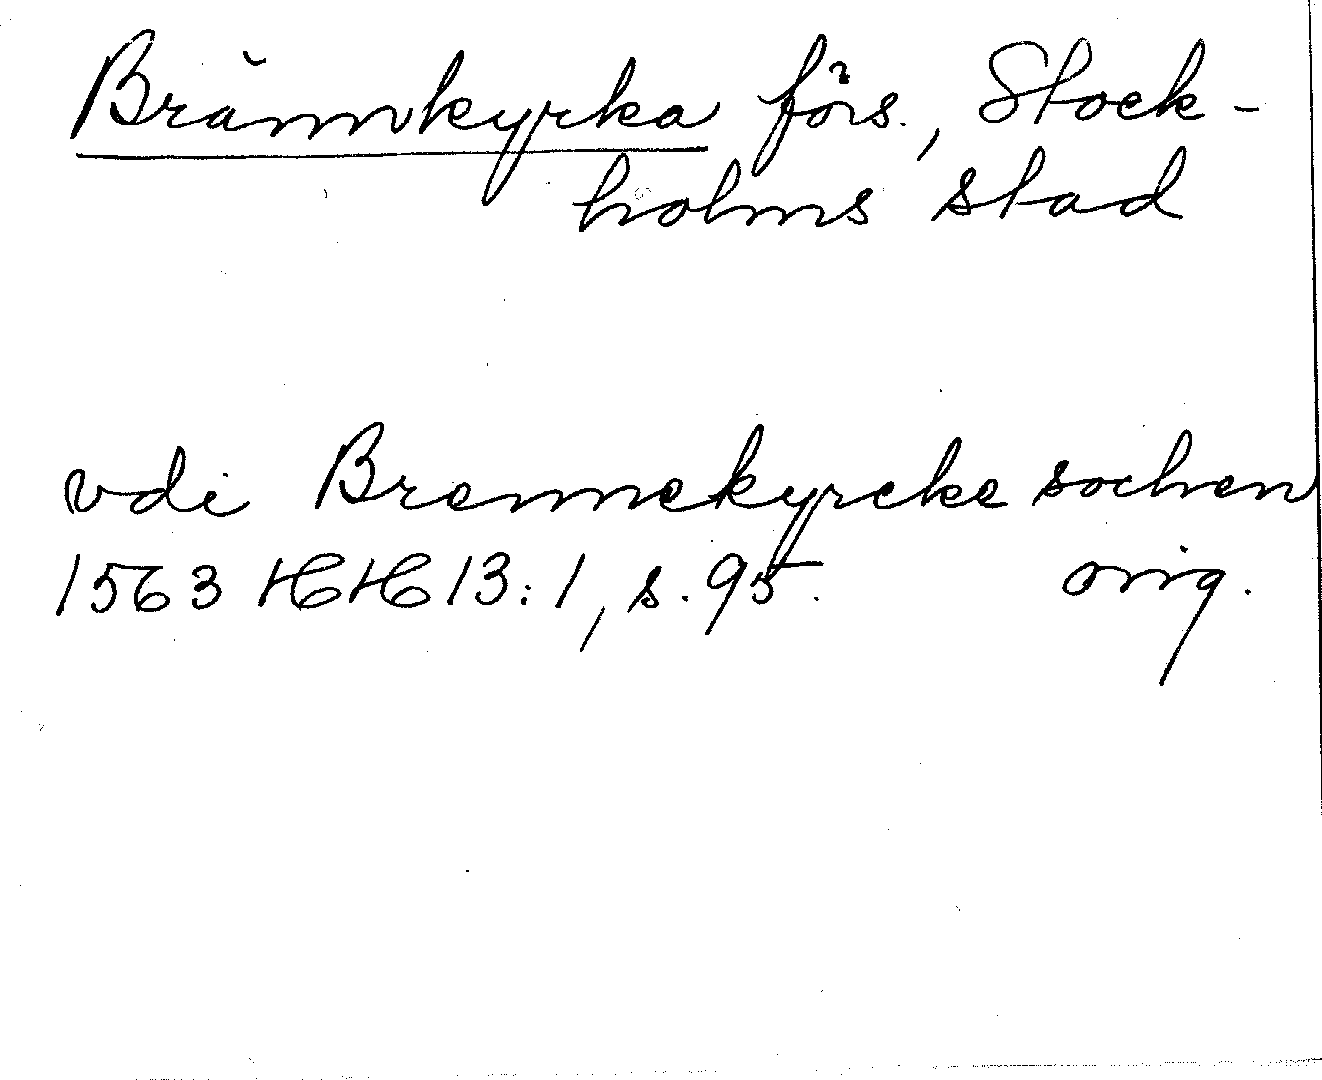 Brännkyrka förs., Stock-
holms stad
vdi Brennekyrcke sochen
1563 HH 13:1, s. 95. orig.